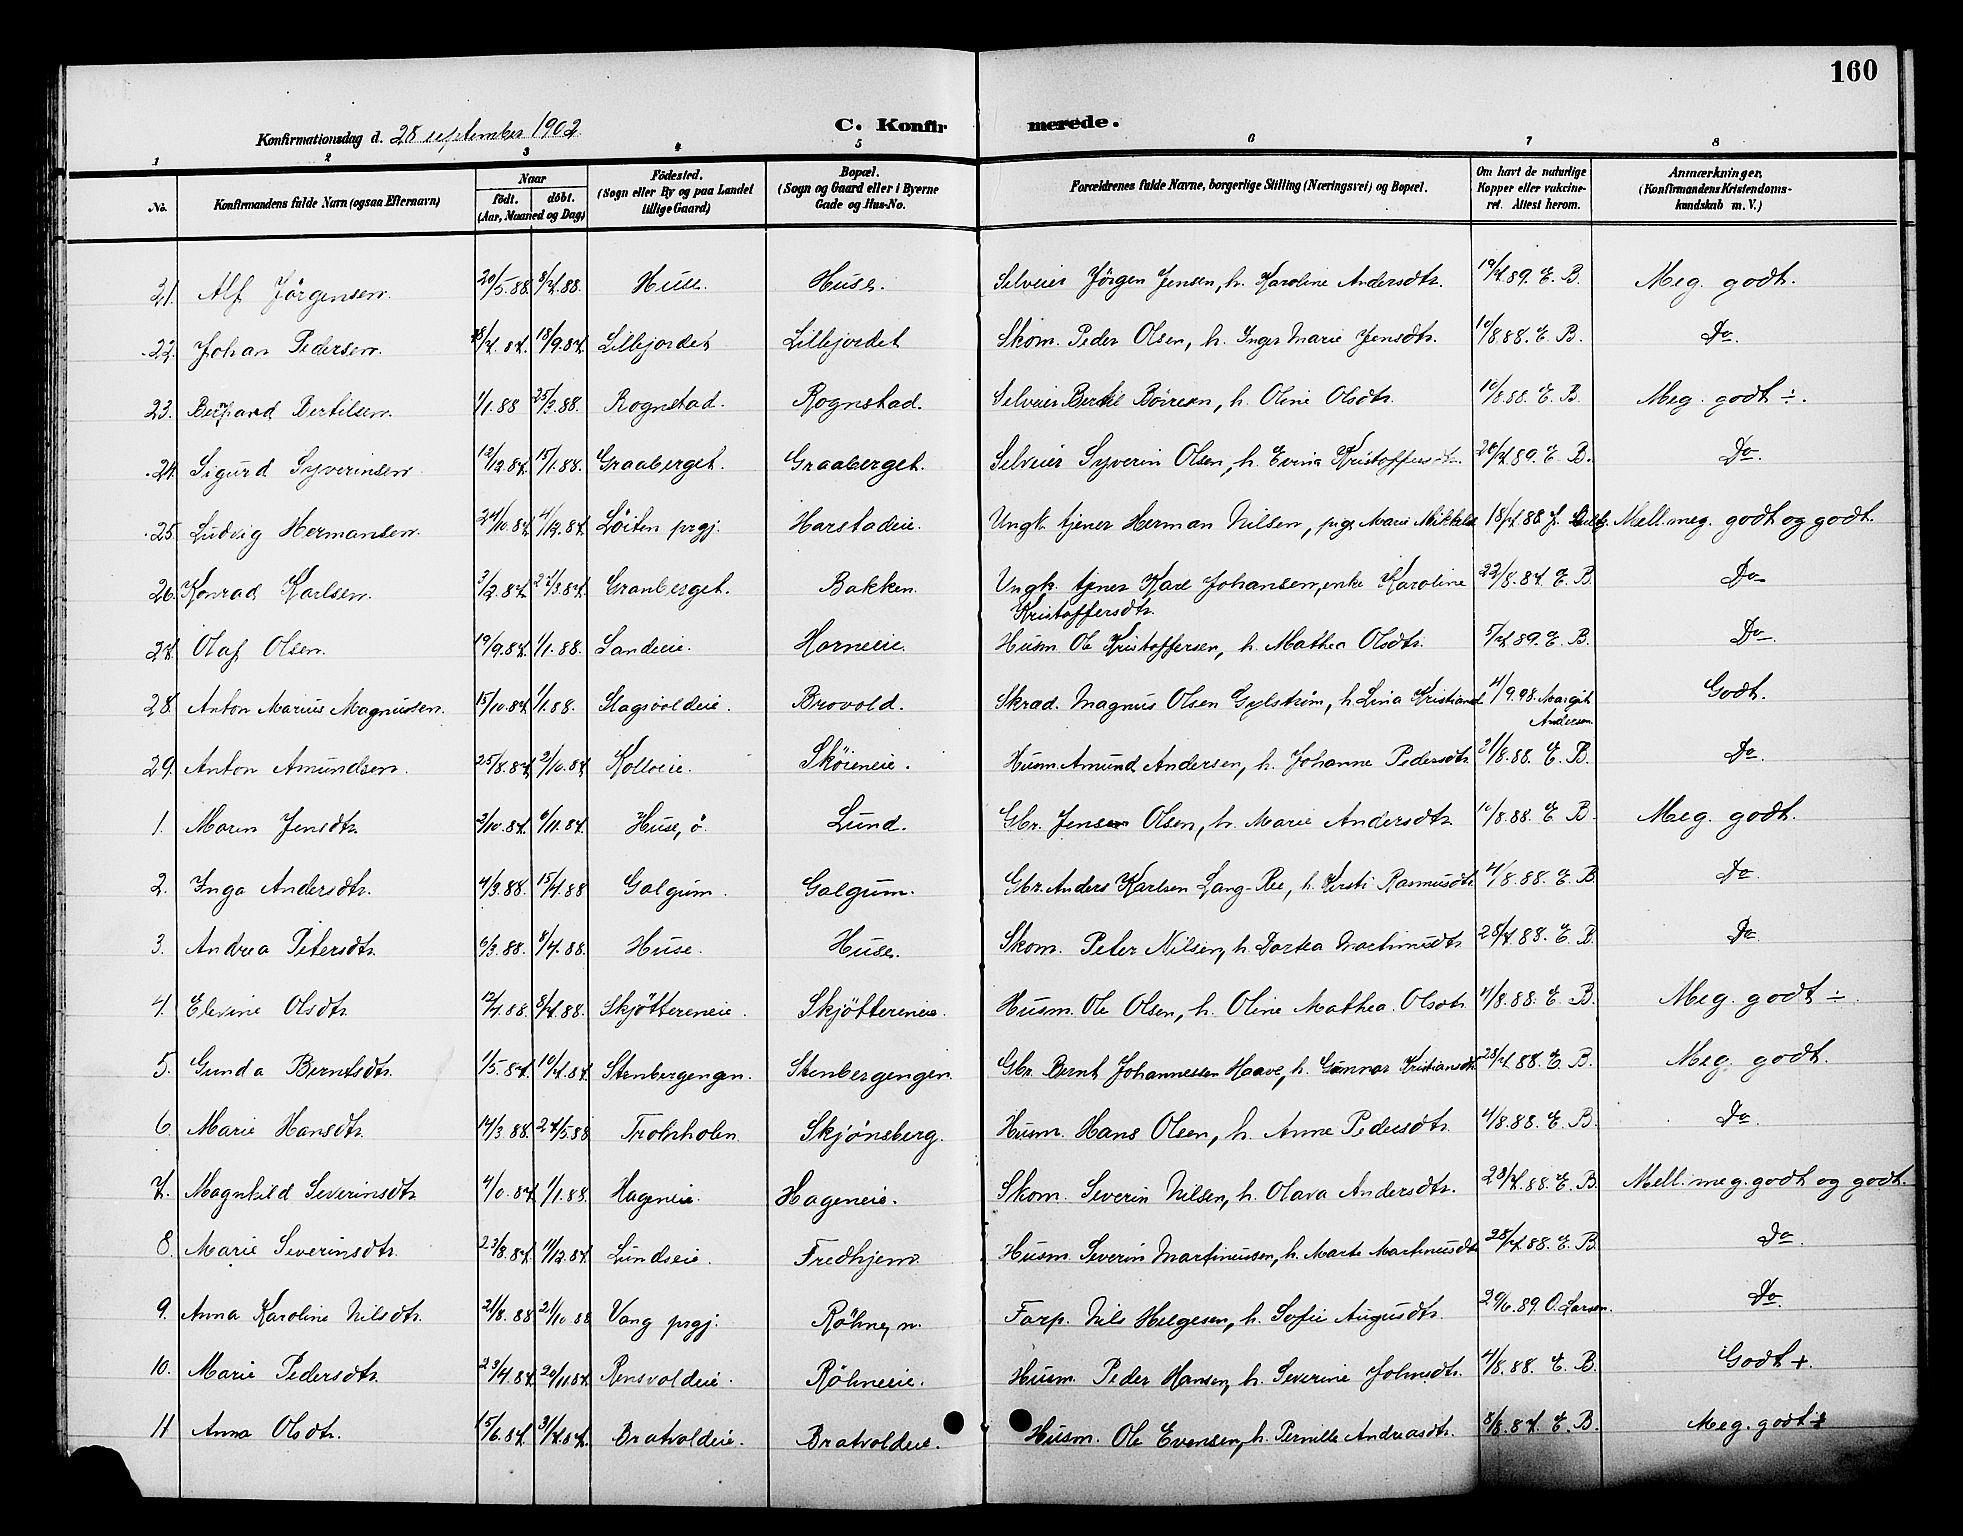 160
Konfirmationsdag d. 28 september 1902
C. Konfirmerede.
1 2 3 4 5 6 7 8
No. Konfirmandens fulde Navn (ogsaa Efternavn) Naar födt. döbt. (Aar, Maaned og Dag) Födested. (Sogn eller By og paa Landet tillige Gaard) Bopæl. (Sogn og Gaard eller i Byerne Gade og Hus-No. Forældrenes fulde Navne, borgerlige Stilling (Næringsvei) og Bopæl. Om havt de naturlige Kopper eller vaccineret. Attest herom. Anmærkninger, (Konfirmandens Kristendomskundskab m. V.)
21. Alf Jörgensen. 20/5.88. 8/7.88. Huse. Huse. Selveier Jörgen Jensen, h. Karoline Andersdtr. 19/7.89. E. B. Meg. godt.
22. Johan Pedersen. 18/9.87. Lillejordet Lillejordet Skom. Peder Olsen, h. Inger Marie Jensdtr. 10/8.88. E. B. Do.
23. Bertilsen. 1/1.88 25/3.88. Rognstad. Rognstad. Selveier Bertil h. Oline Olsdtr. 10/8.88. E. B. Meg. godt ÷.
24. Sigurd Syverinsen. 12/12.87. 15/1.88. Graaberget. Graaberget. Selveier Syverin Olsen, h. Evina 20/7.89. E. B. Do.
25. Ludvig Hermansen. 24/10.87. 4/12.87. Löiten prgj. Harstadeie. Ungk. tjener Herman Nilsen, pige Marie 18/7.88 Mell. meg. godt og godt.
26. Konrad Karlsen. 3/2.87. 27/3.87. Granberget. Bakken. Ungk. tjener Karl Johansen, enke Karoline
Kristoffersdtr. 22/8.87. E. B. Do
27. Olaf Olsen. 19/9.87. 1/1.88. Sandeie. Horneeie. Husm. Ole Kristoffersen, h. Mathea Olsdtr. 5/7.89. E. B. Do
28. Anton Marius Magnussen. 15/10.87. 1/1.88. Slagsvoldeie. Brovold. Skræd. Magnus Olsen Gylstrøm, h. Lina 4/9.98. Margit Andersen Godt.
29. Anton Amundsen. 25/8.87. 2/10.87. Sköieneie. Husm. Amund Andersen, h. Johanne Pedersdtr. 31/8.88. E. B. Do
1. Maren Jensdtr. 2/10.87. 6/11.87. Huse, ö. Lund. Gbr. Jens Olsen, h. Marie Andersdtr. 10/8.88. E. B. Meg. godt.
2. Inga Andersdtr. 4/3.88. 15/4.88 Galgum. Galgum. Gbr. Anders Karlsen Lang-Ree, h. Kersti Rasmusdtr. 4/8.88. E. B. Do.
3. Andrea Petersdtr. 6/3.88. 8/4.88. Huse. Huse. Skom. Peter Nilsen, h. Dortea 28/7.88. E. B. Do.
4. Elevine Olsdtr. 12/4.88. 8/7.88. Skjöttereneie. Skjöttereneie. Husm. Ole Olsen, h. Oline Mathea. Olsdtr. 4/8.88. E. B. Meg. godt ÷.
5. Gunda Berntsdtr. 1/5.87. 10/7.87. Stenbergengen. Stenbergengen. Gbr. Bernt Johannessen Haave, h. Gunnar Kristiansdtr. 28/7.88. E. B. Meg. godt.
6. Marie Hansdtr. 14/3.88. 27/5.88. Trohoholen Skjönsberg. Husm. Hans Olsen, h. Anne Pedersdtr. 4/8.88. E. B. Do.
7. Magnhild Severinsdtr. 1/1.88. Hageneie. Hageneie. Skom. Severin Nilsen, h. Olava Andersdtr. 28/7.88. E. B. Mell. meg. godt og godt.
8. Marie Severinsdtr. 23/8.87. 4/12.87. Lundseie. Fredhjem. Husm. Severin Martineussen, h. Marte Martinusdtr. 28/7.88. E. B. Do.
9. Anna Karoline Nilsdtr. 21/8.88. 21/10.88 Vang prgj. Röhne, n. Forp. Nils Helgesen, h. Sofie Augusdtr. 29/6.89. O. Larsen. Do
10. Marie Pedersdtr. 23/4.87. 20/11.87. Rensvoldeie. Röhneeie. Husm. Peder Hansen, h. Severine Johnsdtr. 4/8.88. E. B. Godt +.
11 Anna Olsdtr. 15/6.87. 31/7.87. Bratvoldeie. Bratvoldeie. Husm. Ole Evensen, h. Pernille Andreasdtr. 8/8.87. E. B. Meg. godt